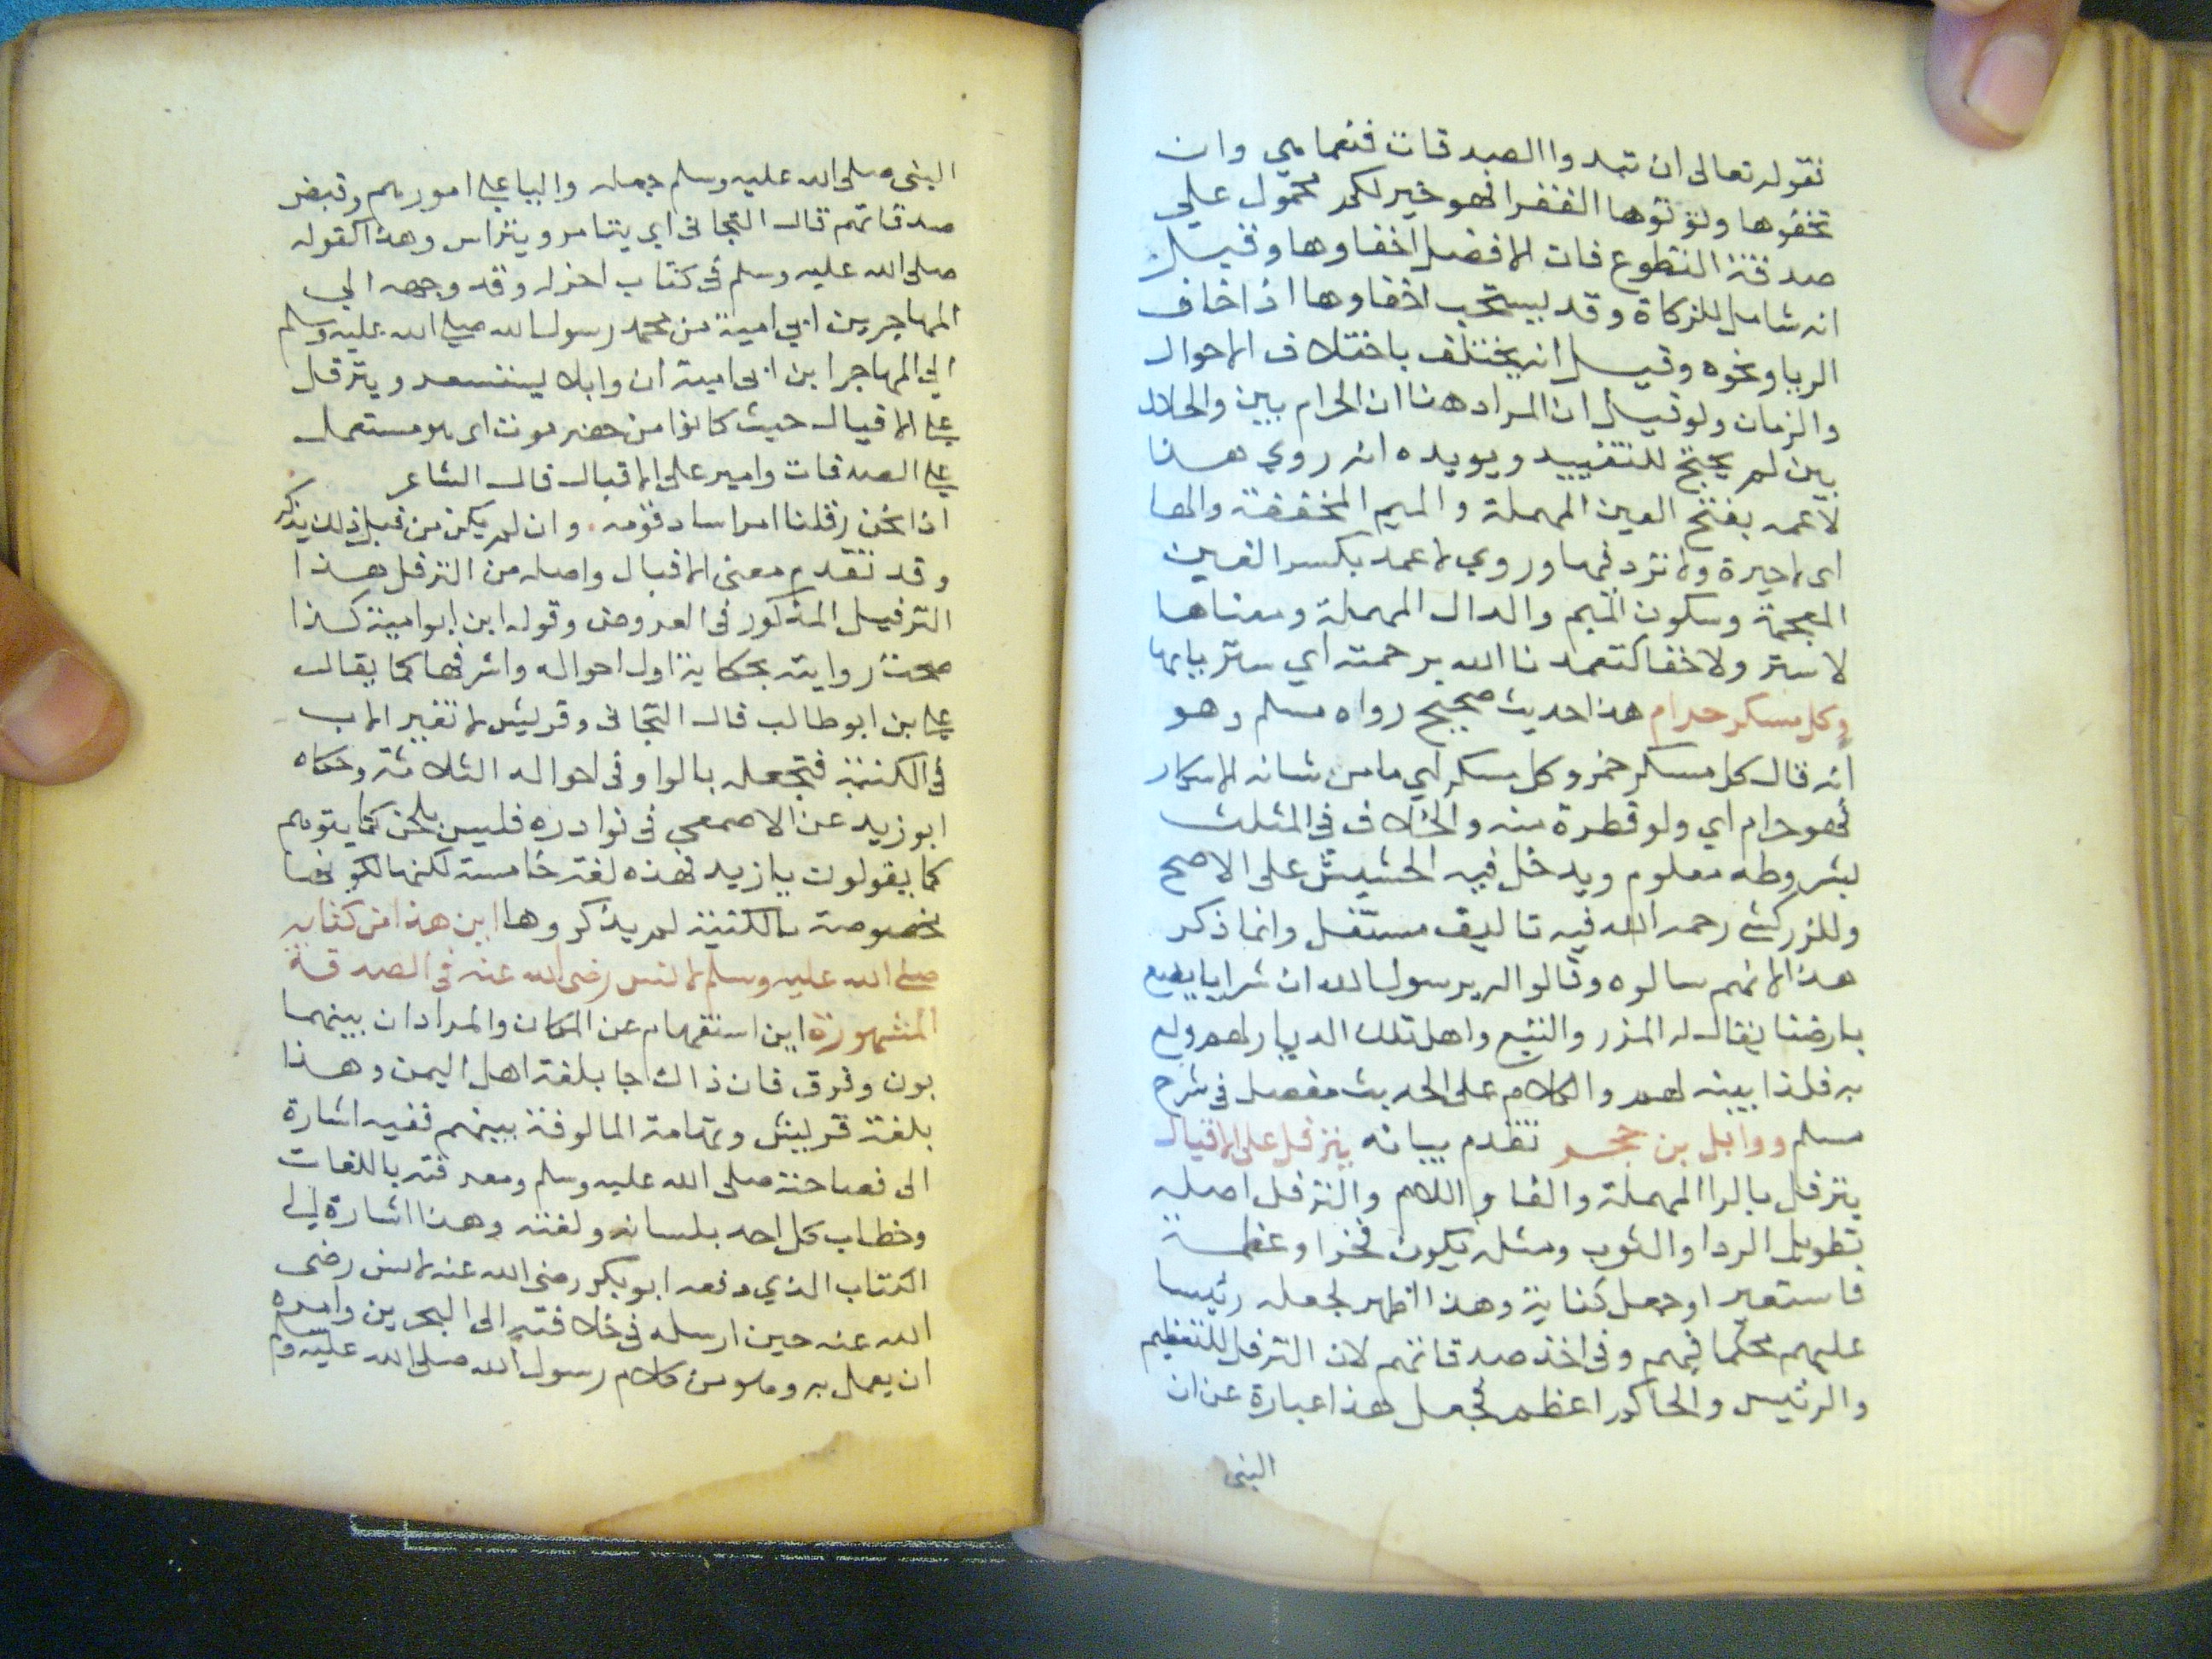 نقوله تعالى ان تبدوا الصدقات فنعما هي وان
تخفوها وتؤتوها الفقرا فهو خير لكم محمول علي
صدقة التطوع فان الافضل اخفاوها وقيل
انه شامل للزكاة وقد يستحب اخفاوها اذا خاف
الريا ونحوه وقيل انه يختلف باختلاف الاحوال
والزمان ولو قيل ان المراد هنا ان الحرام بين والحلال
بين لم يحتج للتقييد ويويده انه روي هنا
لا عمه بفتح العين المهملة والميم المخففة والها
اى لا حيرة ولا تردد فيها وروي لا غمد بكسر الغين
المعجمة وسكون الميم والدال المهملة ومعناها
لا ستر ولا خفا كتغمدنا الله برحمته اي سترنا بها
وكل مسكر حرام هذا حديث صحيح رواه مسلم وهو
انه قال كل مسكر خمر وكل مسكر اي ما من شانه الاسكار
فهو حرام اي ولو قطرة منه والخلاف في المثلث
بشروطه معلوم ويدخل فيه الحشيش على الاصح
وللزركشي رحمه الله فيه تاليف مستقل وانما ذكر
هذا لانهم سالوه وقالوا له يرسول الله ان شرابا يصنع
بارضنا يقال له المزر والبتع واهل تلك الديار لهم ولع
به فلذا بينه لهم والكلام على الحديث مفصل فى شرح
مسلم ووايل بن حجر تقدم بيانه يترفل على الاقيال
يترفل بالرا المهملة والفا واللام والترفل اصله
تطويل الردا والثوب ومثله يكون فخرا وعظمة
فاستعير او جعل كناية وهذا اظهر لجعله رئيسا
عليهم محكما فيهم وفى اخذ صدقاتهم لان الترفل للتعظيم
والرئيس والحاكم اعظم فجعل هذا عبارة عن ان
النبى
النبى صلى الله عليه وسلم جعله واليا علي امورهم وقبض
صدقاتهم قال التجانى اى يتامر ويتراس وهذا كقوله
صلى الله عليه وسلم فى كتاب اخر له وقد وجهه الي
المهاجر بن ابي امية من محمد رسول الله صلي الله عليه وسلم
الي المهاجر ابن ابى امية ان وايلا يستسعد ويترفل
علي الاقيال حيث كانوا من حضر موت اى هو مستعمل
علي الصدقات وامير على الاقيال قال الشاعر
اذا نحن رفلنا امرا ساد قومه. وان لم يكن من قبل ذلك يذكر
وقد تقدم معنى الاقيال واصله من الترفل هذا
الترفيل المذكور فى العروض وقوله ابن ابو امية كذا
صحت روايته بحكاية اول احواله واشرفها كما يقال
علي بن ابو طالب قال التجانى وقريش لا تغير الاب
فى الكنية فتجعله بالواو فى احواله الثلاثة وحكاه
ابو زيد عن الاصمعي فى نوادره فليس بلحن كما يتوهم
كما يقولون يبازيد فهذه لغة خامسة لكنها لكونها
مخصوصة بالكنية لم يذكروها اين هذا من كتابه
صلي الله عليه وسلم لانس رضى الله عنه فى الصدقة
المشهورة اين استفهام عن المكان والمراد ان بينهما
بون وفرق فان ذاك جا بلغة اهل اليمن وهذا
بلغة قريش وتهامة المالوفة بينهم ففيه اشارة
الى فصاحته صلى الله عليه وسلم ومعرفته باللغات
وخطاب كل احد بلسانه ولغته وهذا اشارة الي
الكتاب الذي دفعه ابو بكر رضى الله عنه لانس رضى
الله عنه حين ارسله فى خلافته الى البحرين وامره
ان يعمل به وهو من كلام رسول الله صلى الله عليه وسلم